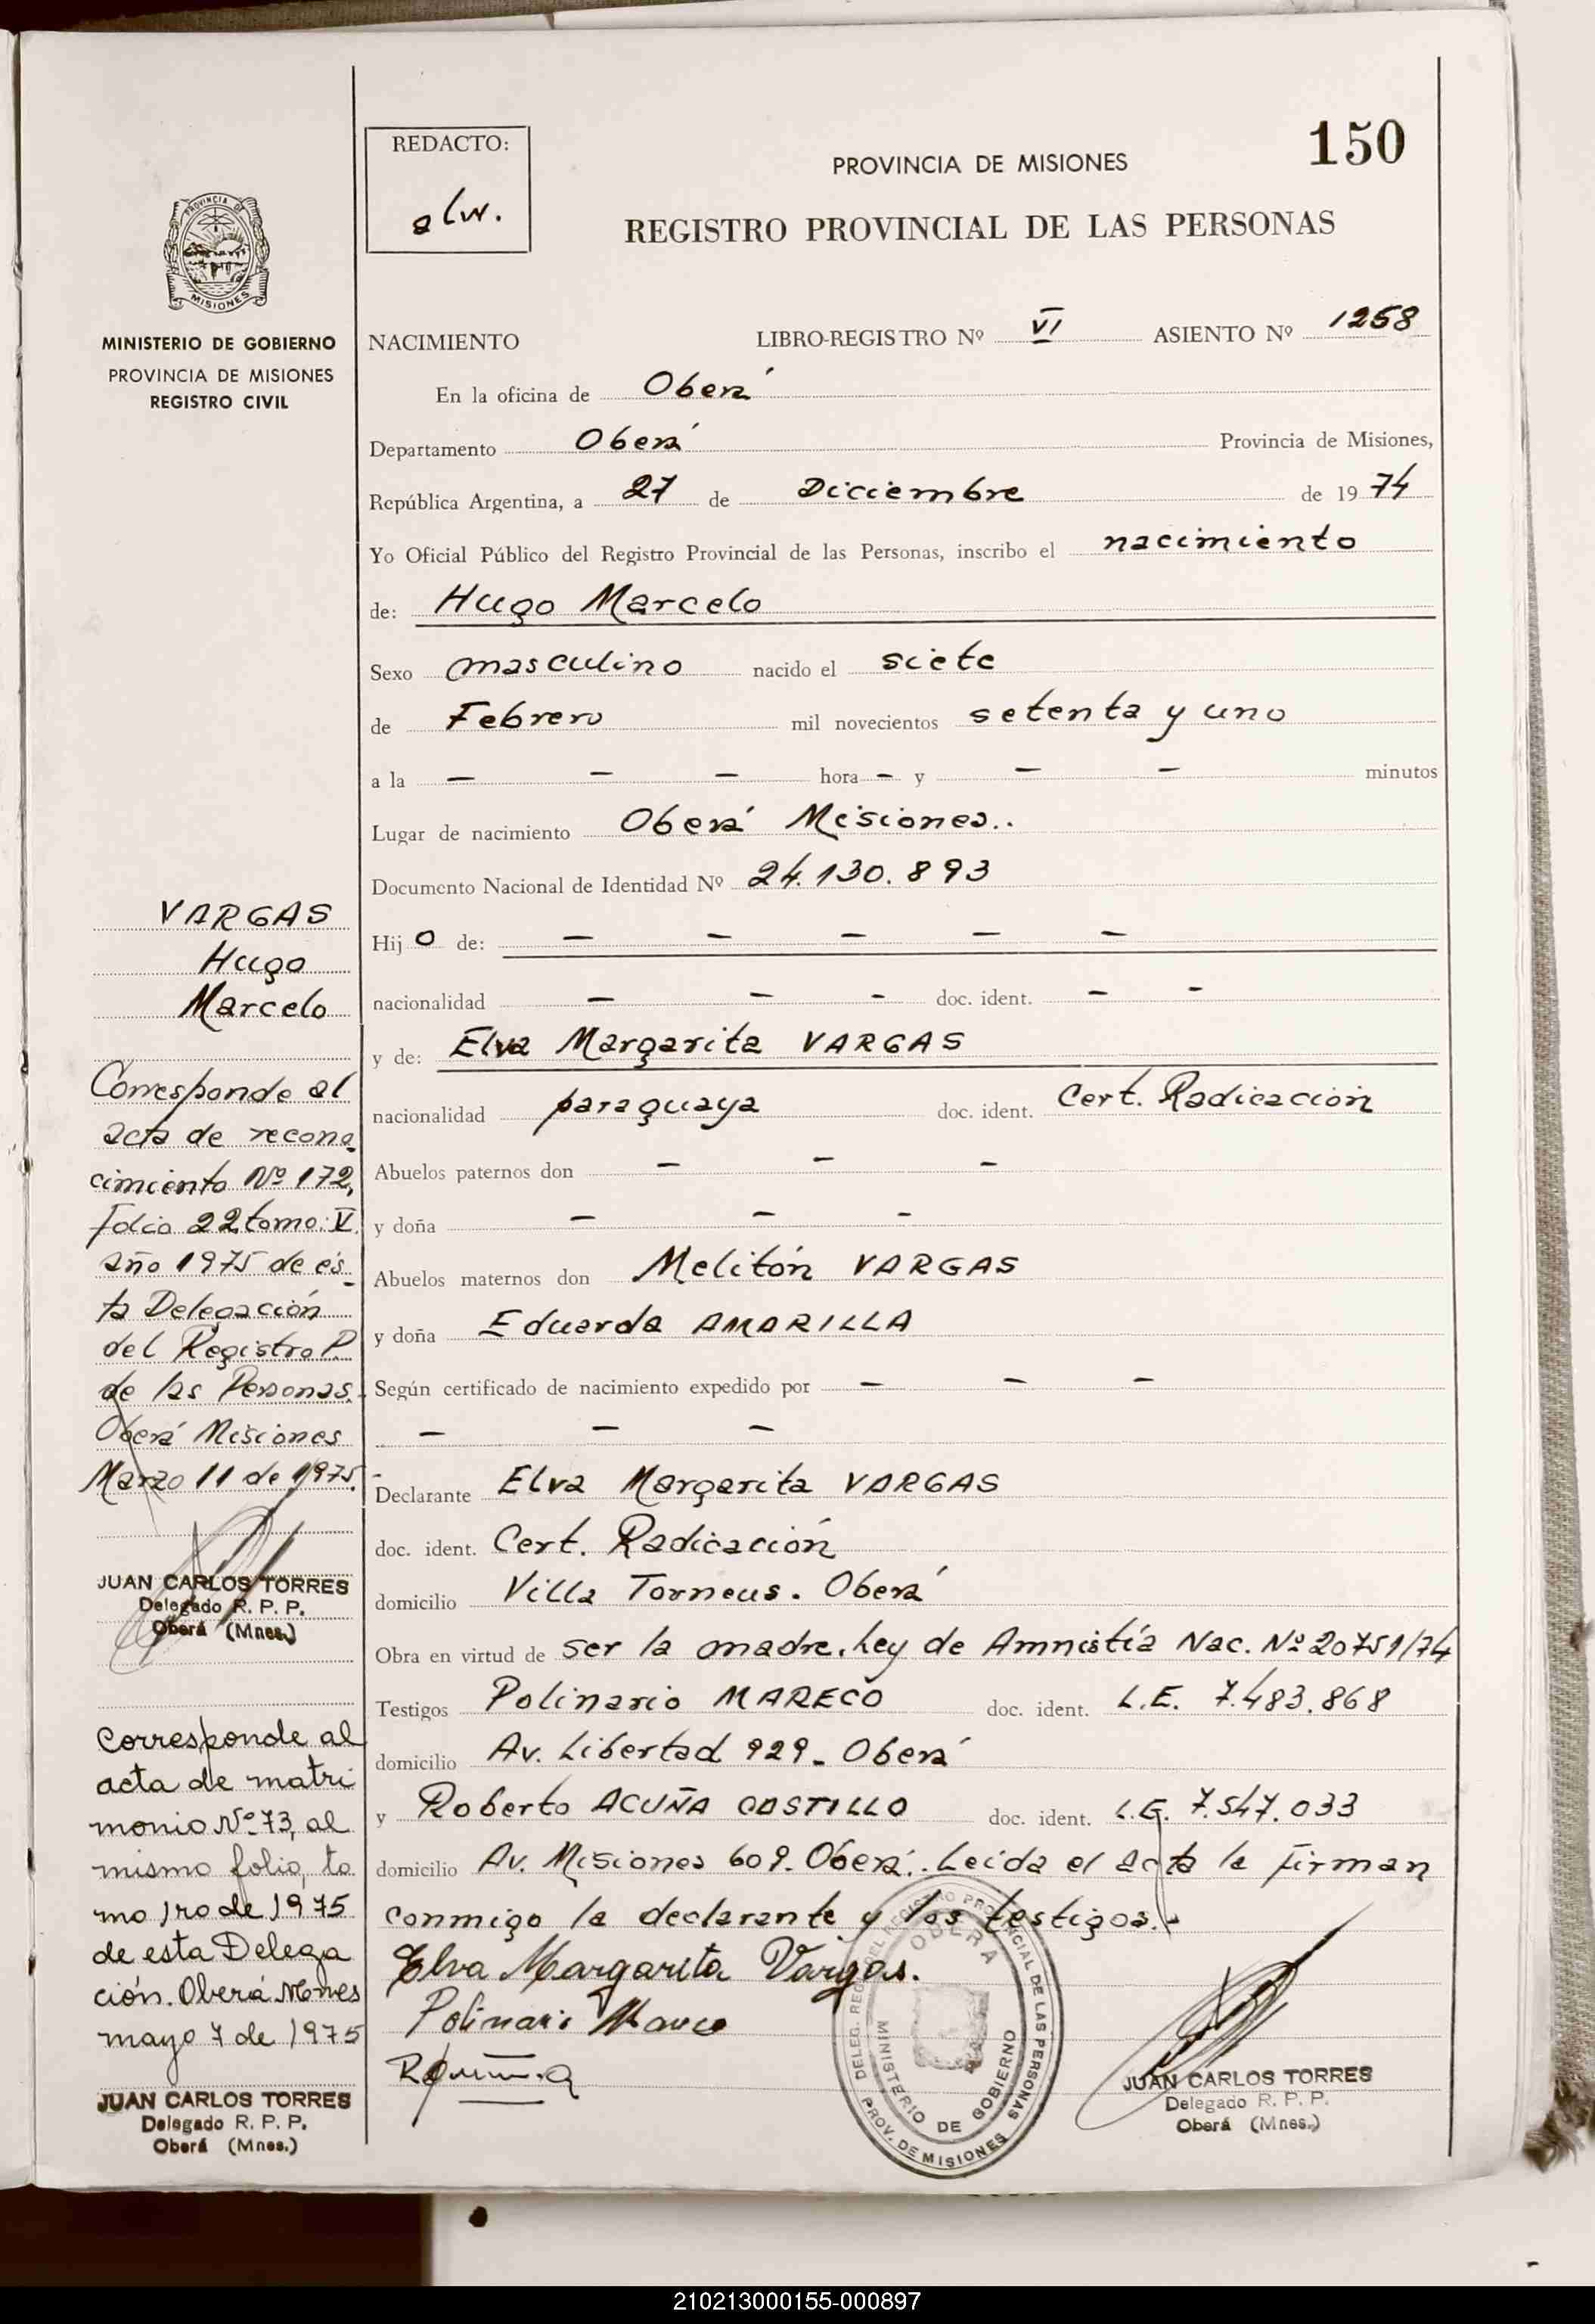 150
REDACTO:
alw.
PROVINCIA DE MISIONES
REGISTRO PROVINCIAL DE LAS PERSONAS
PROVINCIA DE
MISIONES
MINISTERIO DE GOBIERNO
PROVINCIA DE MISIONES
REGISTRO CIVIL
NACIMIENTO LIBRO-REGISTRO Nº VI ASIENTO Nº 1258
En la oficina de Oberá
Departamento Oberá Provincia de Misiones,
República Argentina, a 27 de Diciembre de 1974
Yo Oficial Público del Registro Provincial de las Personas, inscribo el nacimiento
de: Hugo Marcelo
Sexo masculino nacido el siete
de Febrero mil novecientos setenta y uno
a la — — — hora — y — — minutos
Lugar de nacimiento Oberá Misiones..
Documento Nacional de Identidad Nº 24.130.893
Hijo de: — — — — —
nacionalidad — — — doc. ident. — —
y de: Elva Margarita VARGAS
nacionalidad paraguaya doc. ident. Cert. Radicación
Abuelos paternos don — — —
y doña — — —
Abuelos maternos don Melitón VARGAS
y doña Eduarda AMARILLA
Según certificado de nacimiento expedido por — — —
— — —
Declarante Elva Margarita VARGAS
doc. ident. Cert. Radicación
domicilio Villa Torneus. Oberá
Obra en virtud de ser la madre. Ley de Amnistía Nac. Nº 20751/74
Testigos Polinario MARECO doc. ident. L.E. 7.483.868
domicilio Av. Libertad 929- Oberá
y Roberto ACUÑA CASTILLO doc. ident. L.E. 7.547.033
domicilio Av. Misiones 609- Oberá.. Leída el acta la firman
conmigo la declarante y los testigos.-
Elva Margarita Vargas.
Polinari Mareco
JUAN CARLOS TORRES
Delegado R. P. P.
Oberá (Mnes.)
DELEG. REG. DEL REGISTRO PROVINCIAL DE LAS PERSONAS
OBERA
MINISTERIO DE GOBIERNO
PROV. DE MISIONES
VARGAS
Hugo
Marcelo
Corresponde al
acta de recono
cimiento Nº 172,
Folio 22 tomo: V
año 1975 de és-
ta Delegación
del Registro P.
de las Personas.
Oberá Misiones
Marzo 11 de 1975.-
JUAN CARLOS TORRES
Delegado R. P. P.
Oberá (Mnes.)
Corresponde al
acta de matri
monio Nº 73, al
mismo folio, to
mo 1ro de 1975
de esta Delega
ción. Oberá Mnes
mayo 7 de 1975
JUAN CARLOS TORRES
Delegado R. P. P.
Oberá (Mnes.)
210213000155-000897